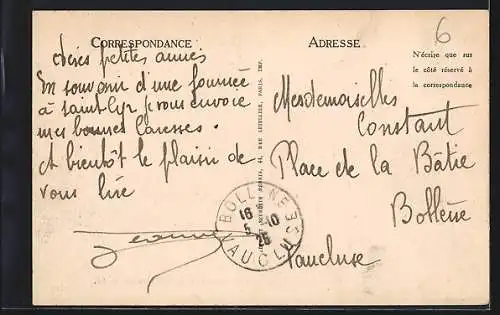 6
CORRESPONDANCE
ADRESSE
N'écrire que sur
le côté réservé à
la correspondance
Chères petites amies
En souvenir d'une journée
à Saint Cyr je vous envoie
mes bonnes caresses.
A bientôt le plaisir de
vous lire
Jeanne
Mesdemoiselles
Constant
Place de la Bâtie
Bollène
Vaucluse
BOLLENE
18 10
5
25
VAUCLUSE